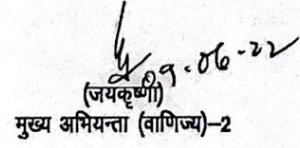 9-06-22
(जयकृष्णा)
मुख्य अभियन्ता (वाणिज्य)-2